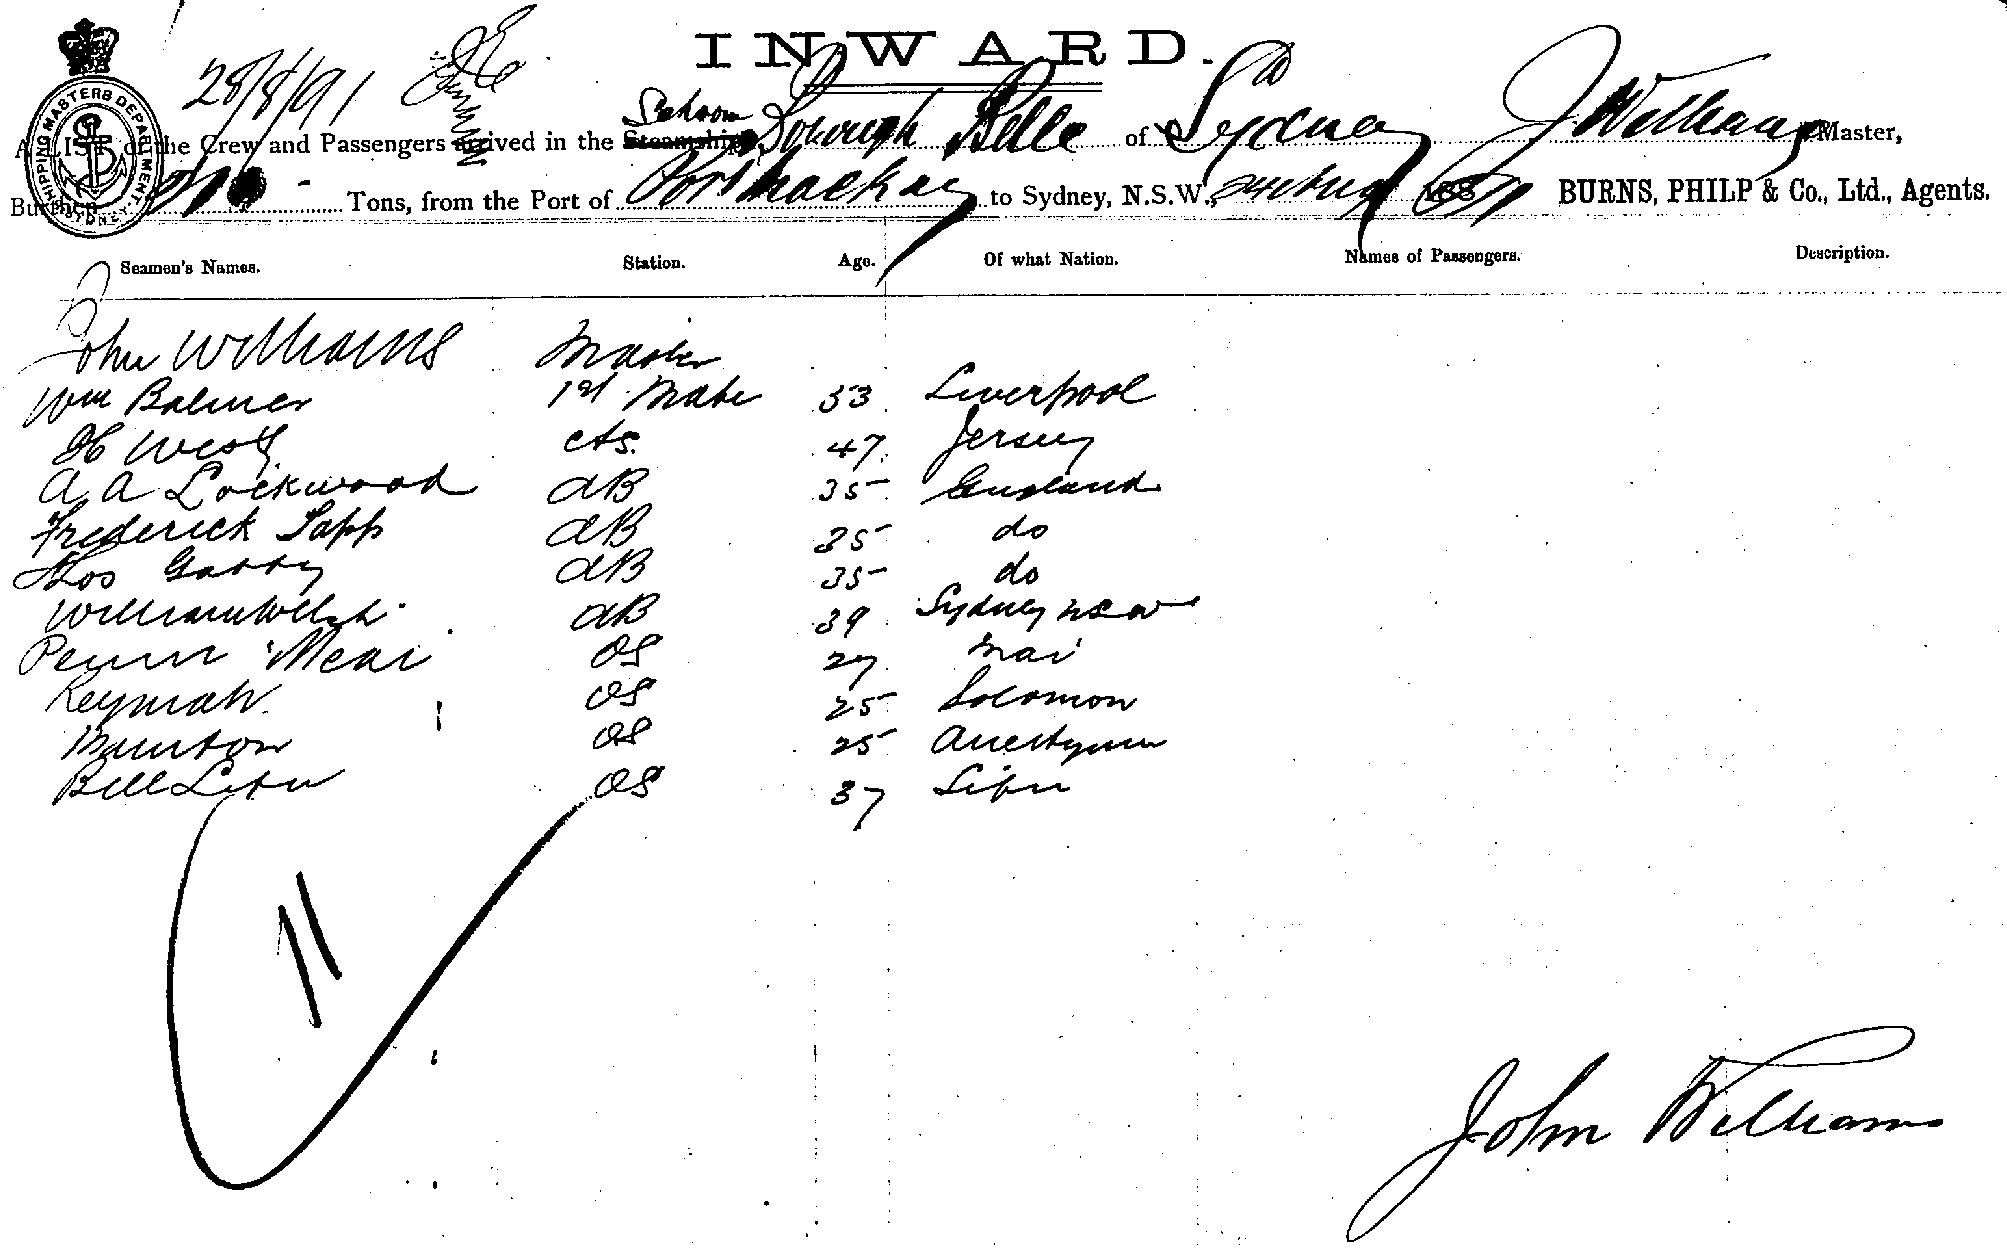 INWARD.
SHIPPING MASTERS DEPARTMENT. SYDNEY.
28/8/91
Schoon
A LIST of the Crew and Passengers arrived in the Steamship Borough Belle of Sydney J Williams Master,
Burthen Tons, from the Port of Port Mackay to Sydney, N.S.W., 188 BURNS, PHILP & Co., Ltd., Agents.
Seamen's Names. Station. Age. Of what Nation. Names of Passengers. Description.
John Williams Master
Wm Balmer 1st Mate 53 Liverpool
H West C&S. 47 Jersey
A A Lockwood AB 35 England
Frederick Sapp AB 35 do
Thos AB 35 do
William Welsh AB 39 Sydney NSW
Mear OS 27 Mai
OS 25 Solomon
OS 25
Bill Lifu OS 37 Lifu
11
John Williams